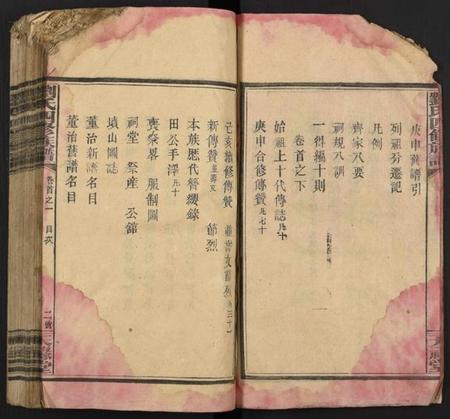 劉氏四修族譜
庚申舊譜引
列祖分遷記
凡例
齊家八要
祠規八訓
一得編十則
卷首之下
始祖上十代傳誌凡十
庚申合修傳贊凡七十
新傳贊
節烈
本族歷代簪纓錄
田公手澤凡十
喪祭畧 服制圖
祠堂 祭產 公館
墳山圖誌
董治新譜名目
董治舊譜名目
劉氏四修族譜
卷首之一 目次